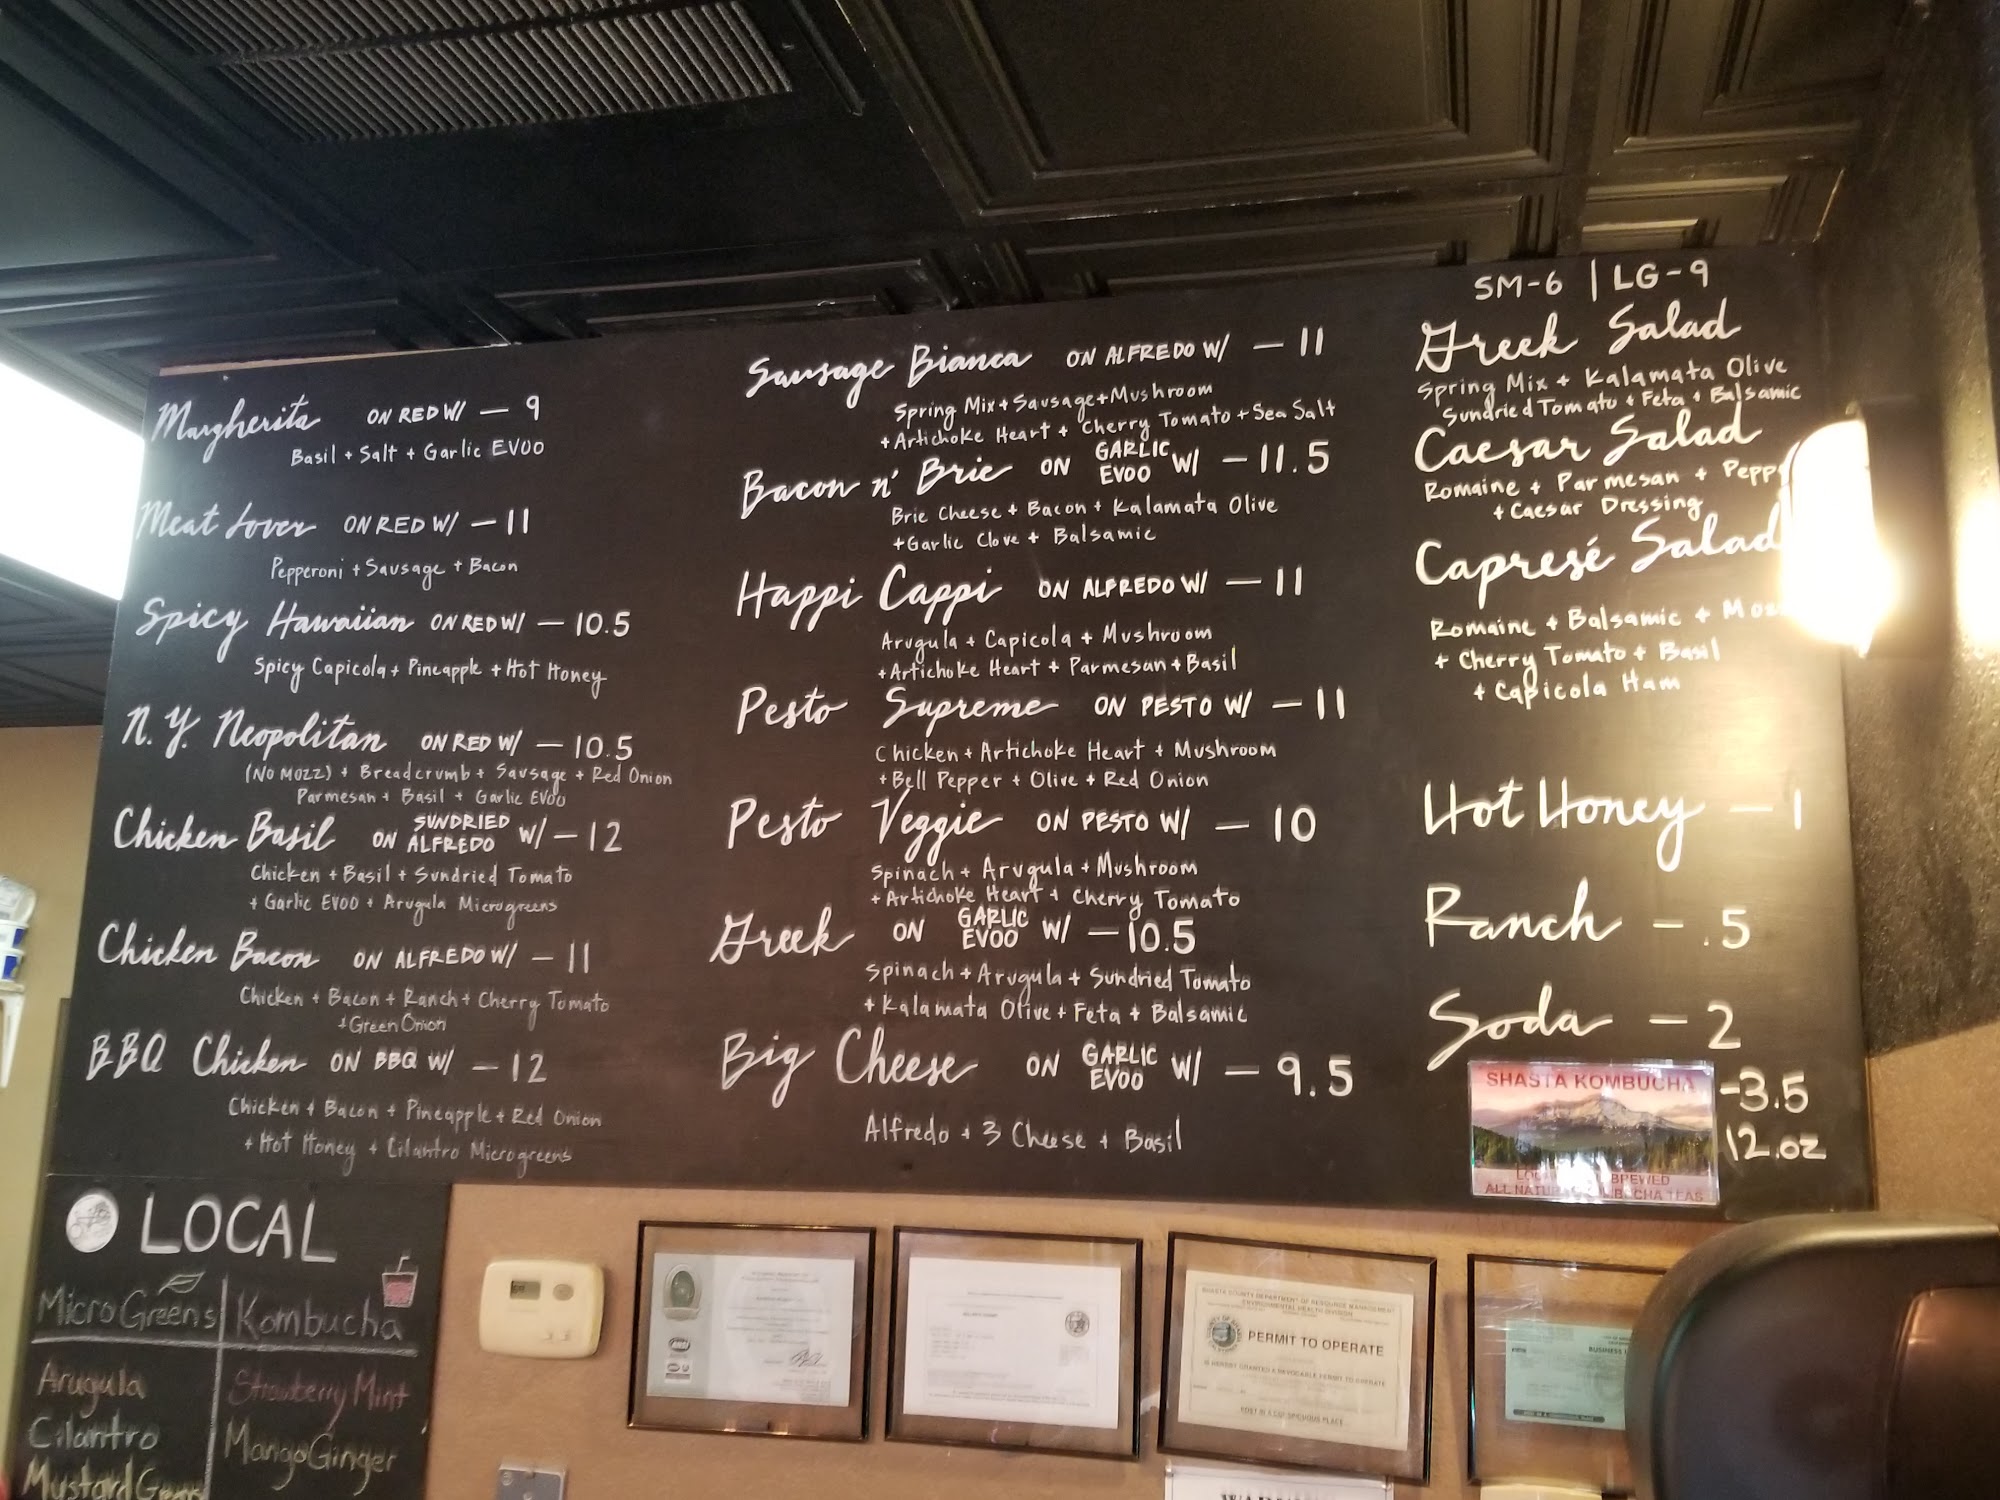 Margherita ON RED W/ — 9
Basil + Salt + Garlic EVOO
Meat Lover ON RED W/ — 11
Pepperoni + Sausage + Bacon
Spicy Hawaiian ON RED W/ — 10.5
Spicy Capicola + Pineapple + Hot Honey
N.Y. Neopolitan ON RED W/ — 10.5
(NO MOZZ) + Breadcrumb + Sausage + Red Onion
Parmesan + Basil + Garlic EVOO
Chicken Basil ON SUNDRIED ALFREDO W/ — 12
Chicken + Basil + Sundried Tomato
+ Garlic EVOO + Arugula Microgreens
Chicken Bacon ON ALFREDO W/ — 11
Chicken + Bacon + Ranch + Cherry Tomato
+ Green Onion
BBQ Chicken ON BBQ W/ — 12
Chicken + Bacon + Pineapple + Red Onion
+ Hot Honey + Cilantro Microgreens
Sausage Bianca ON ALFREDO W/ — 11
Spring Mix + Sausage + Mushroom
+ Artichoke Heart + Cherry Tomato + Sea Salt
Bacon n' Brie ON GARLIC EVOO W/ — 11.5
Brie Cheese + Bacon + Kalamata Olive
+ Garlic Clove + Balsamic
Happi Cappi ON ALFREDO W/ — 11
Arugula + Capicola + Mushroom
+ Artichoke Heart + Parmesan + Basil
Pesto Supreme ON PESTO W/ — 11
Chicken + Artichoke Heart + Mushroom
+ Bell Pepper + Olive + Red Onion
Pesto Veggie ON PESTO W/ — 10
Spinach + Arugula + Mushroom
+ Artichoke Heart + Cherry Tomato
Greek ON GARLIC EVOO W/ — 10.5
Spinach + Arugula + Sundried Tomato
+ Kalamata Olive + Feta + Balsamic
Big Cheese ON GARLIC EVOO W/ — 9.5
Alfredo + 3 Cheese + Basil
SM-6 | LG-9
Greek Salad
Spring Mix + Kalamata Olive
Sundried Tomato + Feta + Balsamic
Caesar Salad
Romaine + Parmesan +
+ Caesar Dressing
Capresé Salad
Romaine + Balsamic +
+ Cherry Tomato + Basil
+ Capicola Ham
Hot Honey — 1
Ranch — .5
Soda — 2
SHASTA KOMBUCHA -3.5
12.oz
BREWED
TEAS
LOCAL
MicroGreens | Kombucha
Arugula
Cilantro
Mustard
Strawberry Mint
Mango Ginger
SHASTA COUNTY DEPARTMENT OF RESOURCE MANAGEMENT
ENVIRONMENTAL HEALTH DIVISION
PERMIT TO OPERATE
POST IN A CONSPICUOUS PLACE
BUSINESS